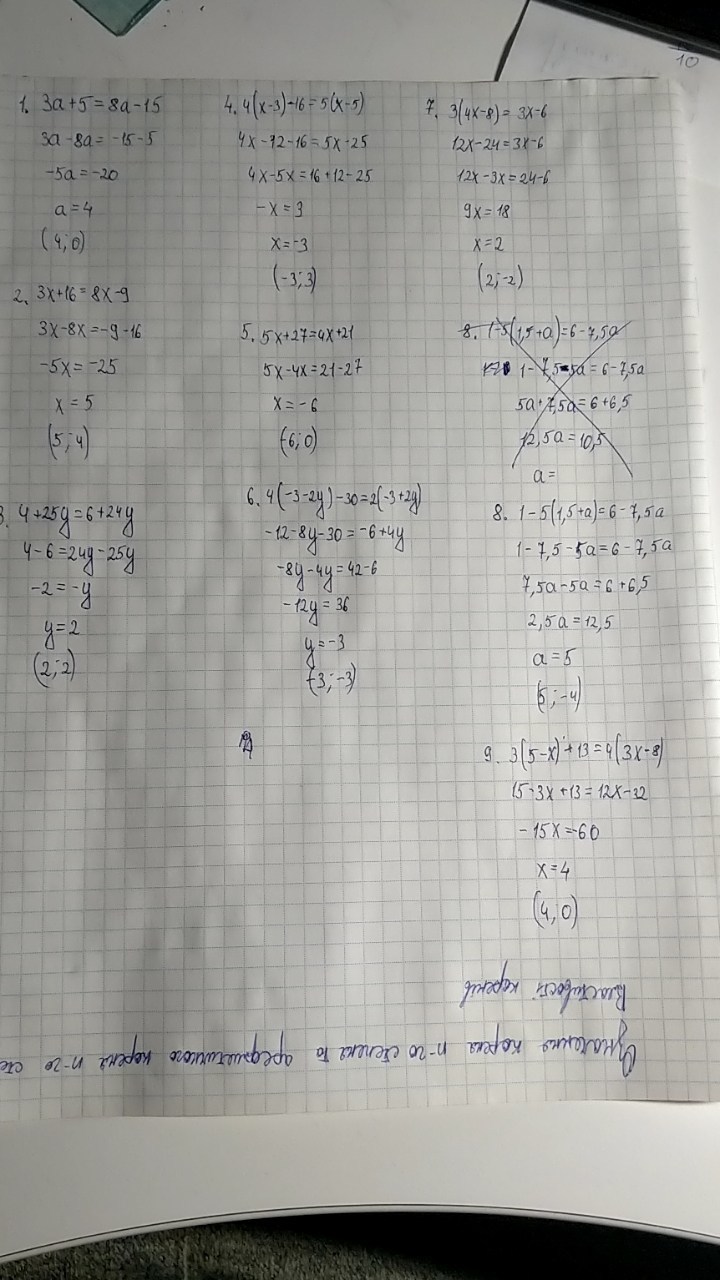 10
1. 3a+5=8a-15
3a-8a=-15-5
-5a=-20
a=4
(4;0)
2. 3x+16=8x-9
3x-8x=-9-16
-5x=-25
x=5
(5;4)
3. 4+25y=6+24y
4-6=24y-25y
-2=-y
y=2
(2;2)
4. 4(x-3)-16=5(x-5)
4x-12-16=5x-25
4x-5x=16+12-25
-x=3
x=-3
(-3;3)
5. 5x+27=4x+21
5x-4x=21-27
x=-6
(-6;0)
6. 4(-3-2y)-30=2(-3+2y)
-12-8y-30=-6+4y
-8y-4y=42-6
-12y=36
y=-3
(-3;-3)
7. 3(4x-8)=3x-6
12x-24=3x-6
12x-3x=24-6
9x=18
x=2
(2;-2)
8. 1-5(1,5+a)=6-7,5a
1-7,5-5a=6-7,5a
5a+7,5a=6+6,5
12,5a=10,5
a=
8. 1-5(1,5+a)=6-7,5a
1-7,5-5a=6-7,5a
7,5a-5a=6+6,5
2,5a=12,5
a=5
(5;-4)
9. 3(5-x)+13=4(3x-8)
15-3x+13=12x-32
-15x=-60
x=4
(4;0)
Означення кореня n-го степеня та арифметичного кореня n-го
Властивості коренів